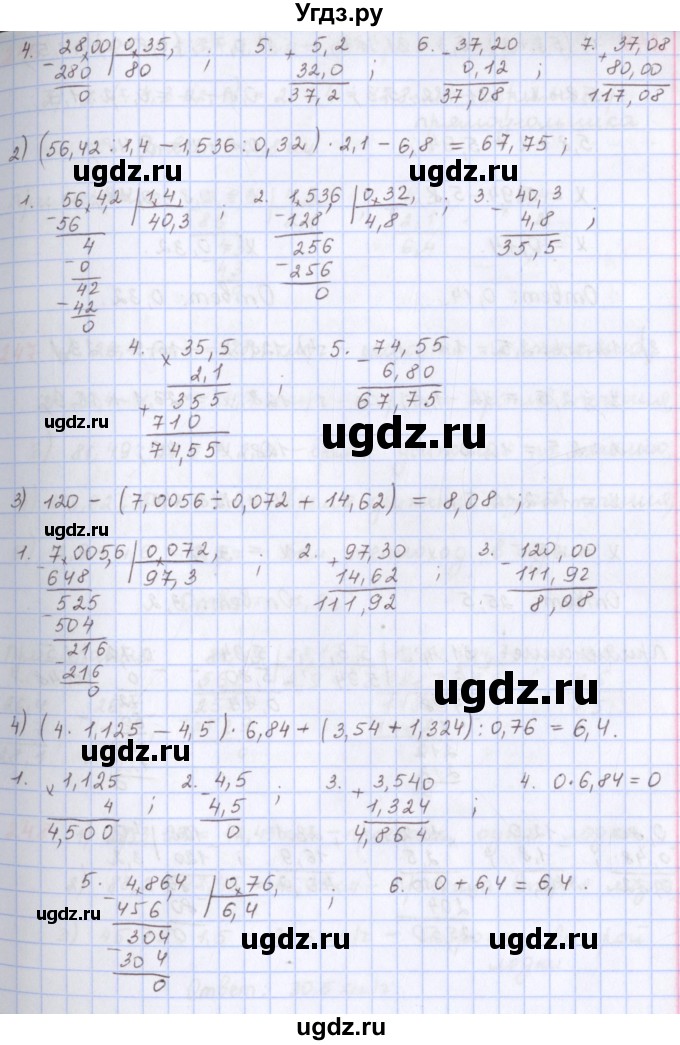 Угдз.ру
4. 28,00 0,35, ; 5. 5,2 6. 37,20 7. 37,08
- 280 80 + 32,0 ; - 0,12 ; + 80,00
0 37,2 37,08 117,08
2) (56,42 : 1,4 - 1,536 : 0,32) · 2,1 - 6,8 = 67,75 ;
ugdz.ru ugdz.ru
1. 56,42 1,4, ; 2. 1,536 0,32, ; 3. - 40,3
- 56 40,3 - 128 4,8 4,8 ;
4 256 35,5
- 0 - 256
42 0
- 42
0
ugdz.ru ugdz.ru
4. × 35,5 5. - 74,55
2,1 ; 6,80
+ 355 67,75
710
74,55
ugdz.ru ugdz.ru
3) 120 - (7,0056 ÷ 0,072 + 14,62) = 8,08 ;
1. 7,005,6 0,072, ; 2. + 97,30 3. - 120,00
- 648 97,3 14,62 ; 111,92
525 111,92 8,08
- 504
216
- 216
0
ugdz.ru ugdz.ru
4) (4 · 1,125 - 4,5) · 6,84 + (3,54 + 1,324) : 0,76 = 6,4.
ugdz.ru
1. × 1,125 2. - 4,5 ; 3. + 3,540 4. 0 · 6,84 = 0
4 ; 4,5 1,324 ;
4,500 0 4,864
5. 4,86,4 0,76, ; 6. 0 + 6,4 = 6,4 .
- 456 6,4
304
- 304
0
ugdz.ru ugdz.ru ugdz.ru
ugdz.ru